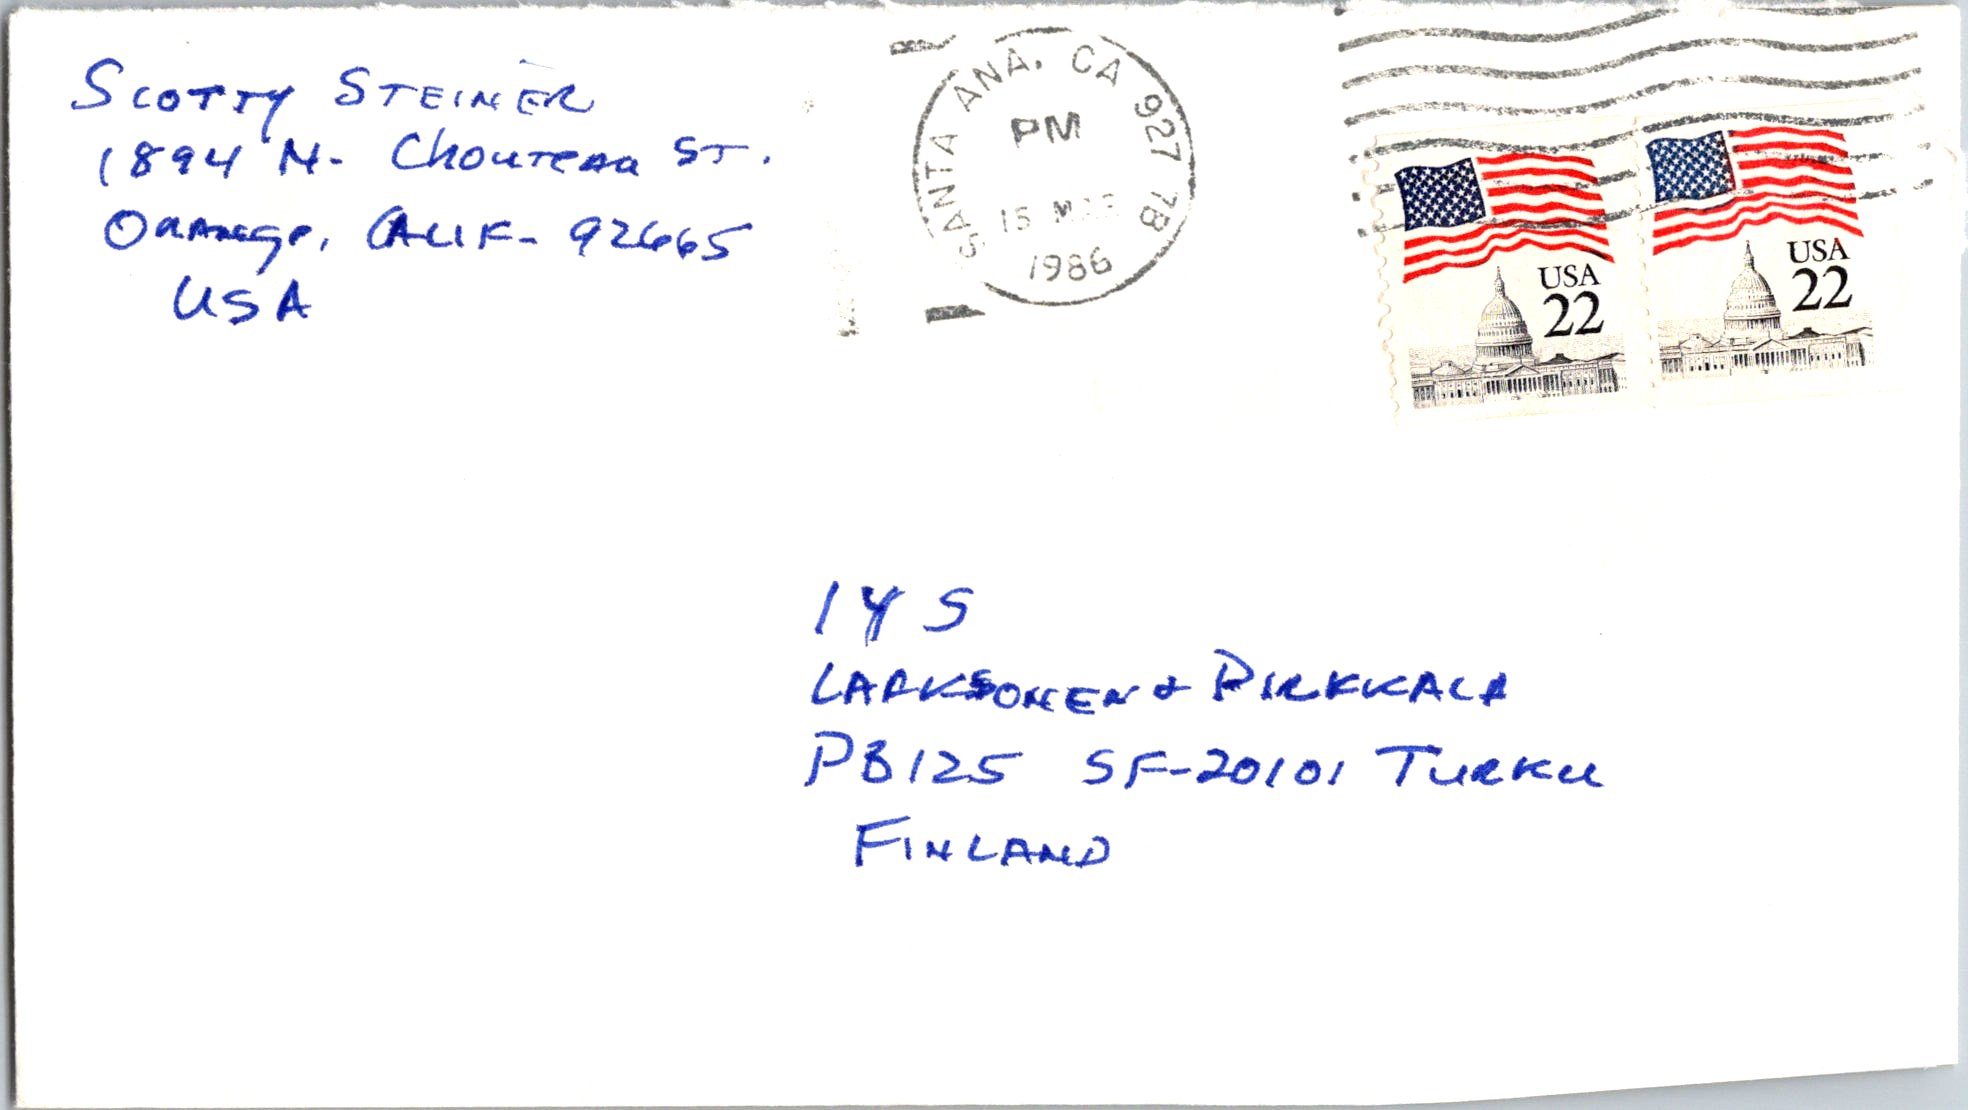 Scotty Steiner
1894 N. Chouteau St.
Orange, Calif. 92665
USA
SANTA ANA, CA 927 7B
PM
15 MAR
1986
USA
22
USA
22
IYS
LAAKSONEN & PIRKKALA
PB125 SF-20101 TURKU
FINLAND